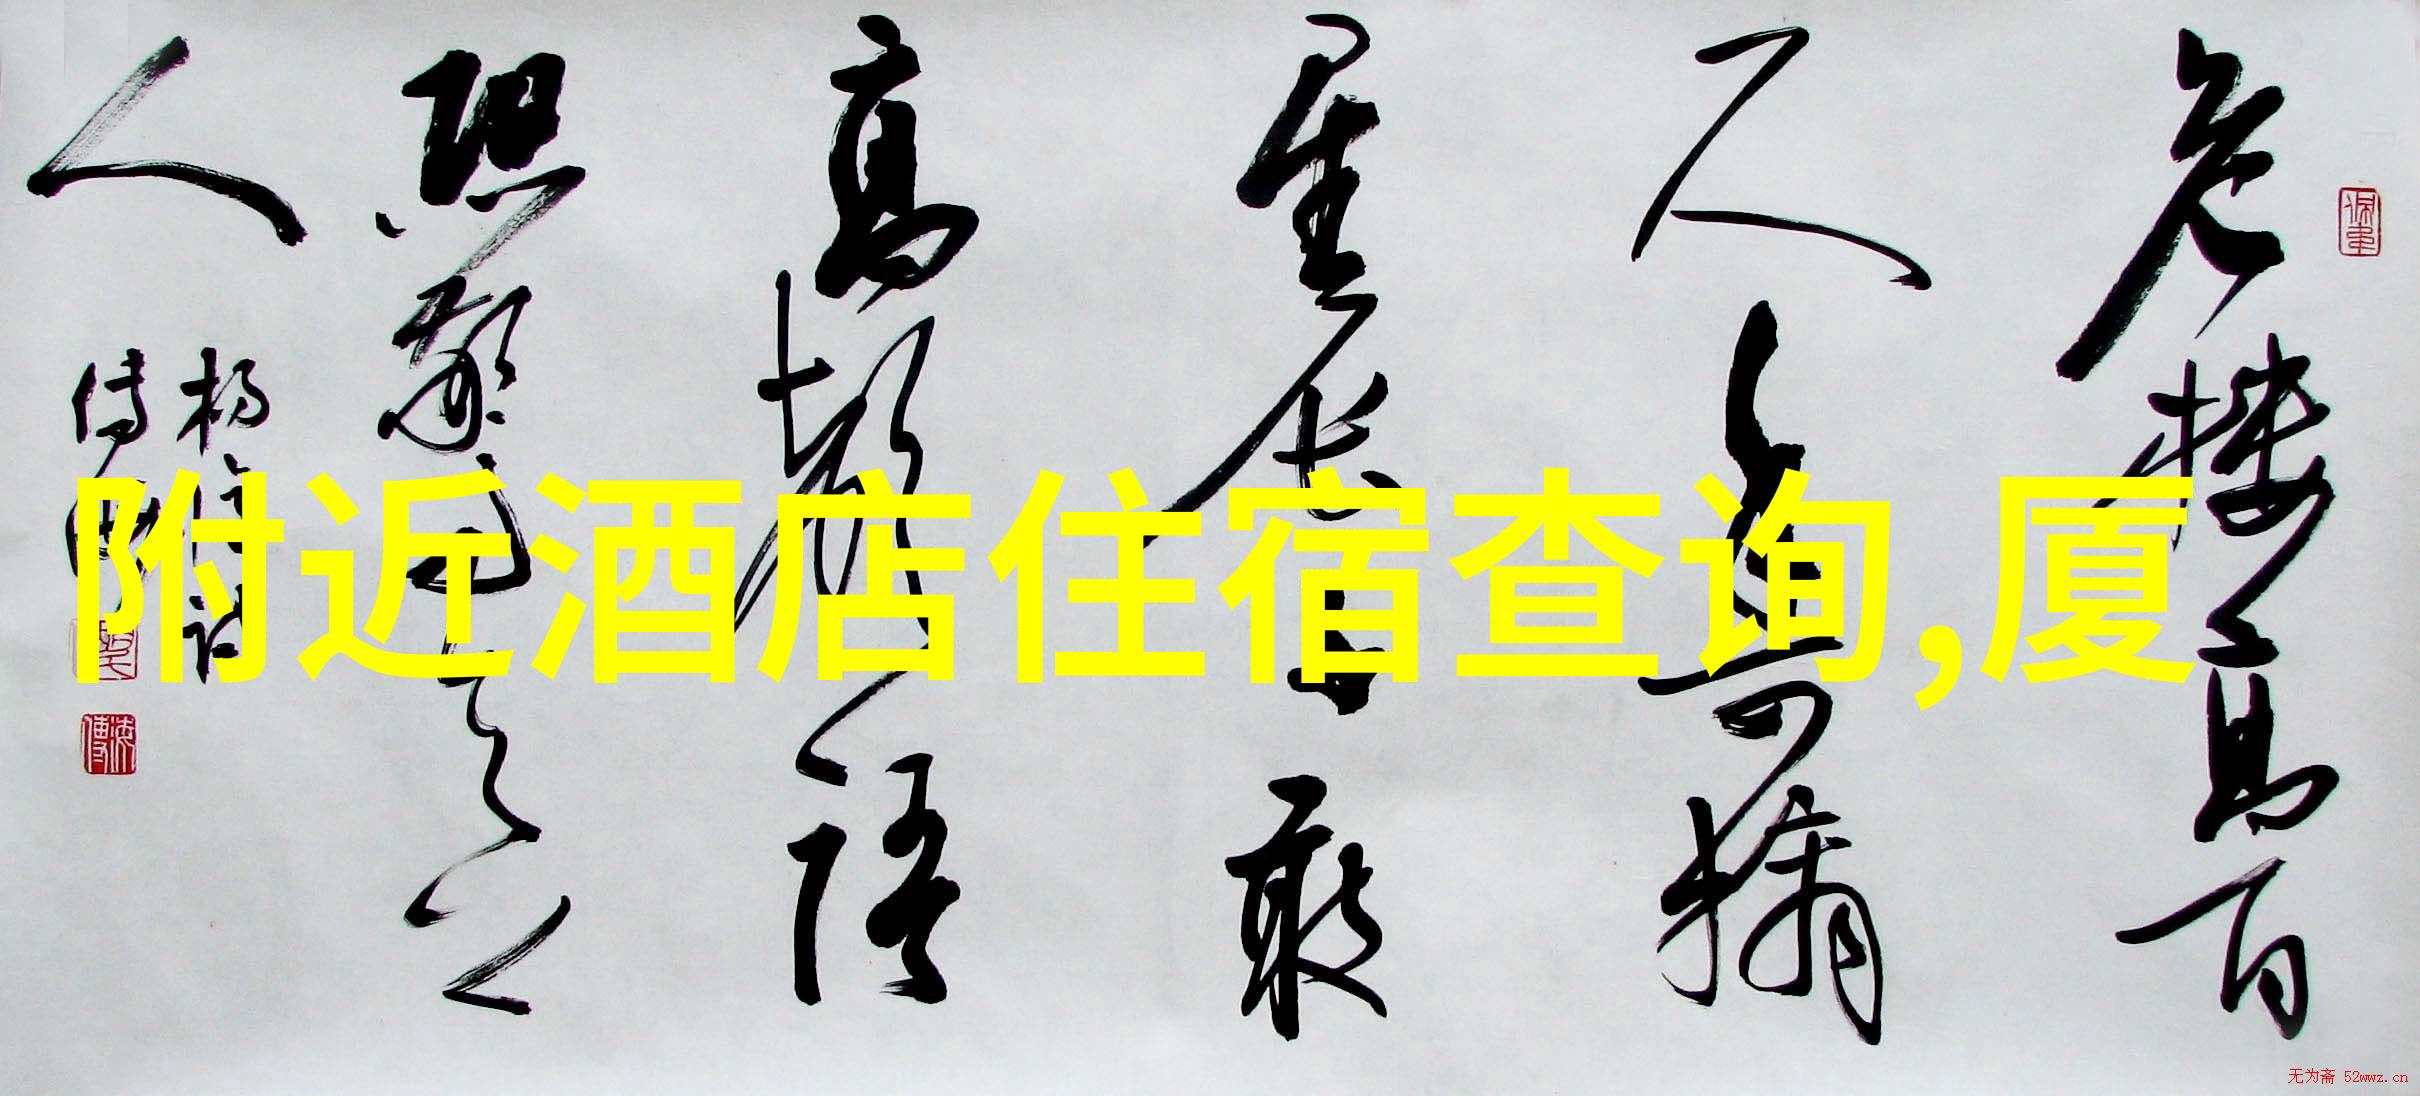 危楼高百
尺手可摘
星辰不敢
高声语
恐惊天上
人
附近酒店住宿查询,厦
无为斋 52wwz.cn